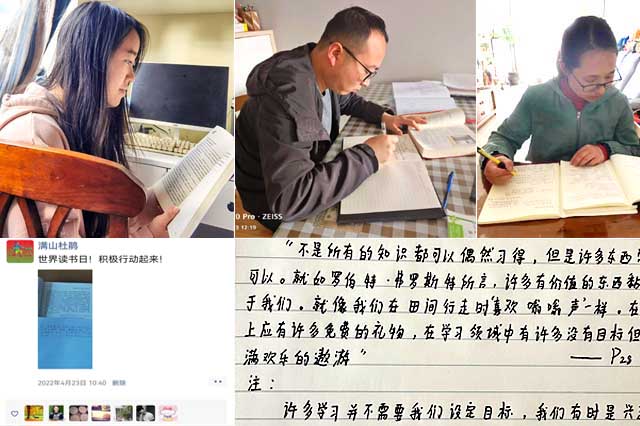 0 Pro · ZEISS
3 12:19
满山杜鹃
世界读书日！积极行动起来！
2022年4月23日 10:40 删除
“不是所有的知识都可以偶然习得，但是许多东西
可以。就如罗伯特·弗罗斯特所言，许多有价值的东西
于我们。就像我们在田间行走时喜欢 声”一样。在
上应有许多免费的礼物，在学习领域中有许多没有目标但
满欢乐的遨游”
—— P28
注：
许多学习并不需要我们设定目标，我们有时是